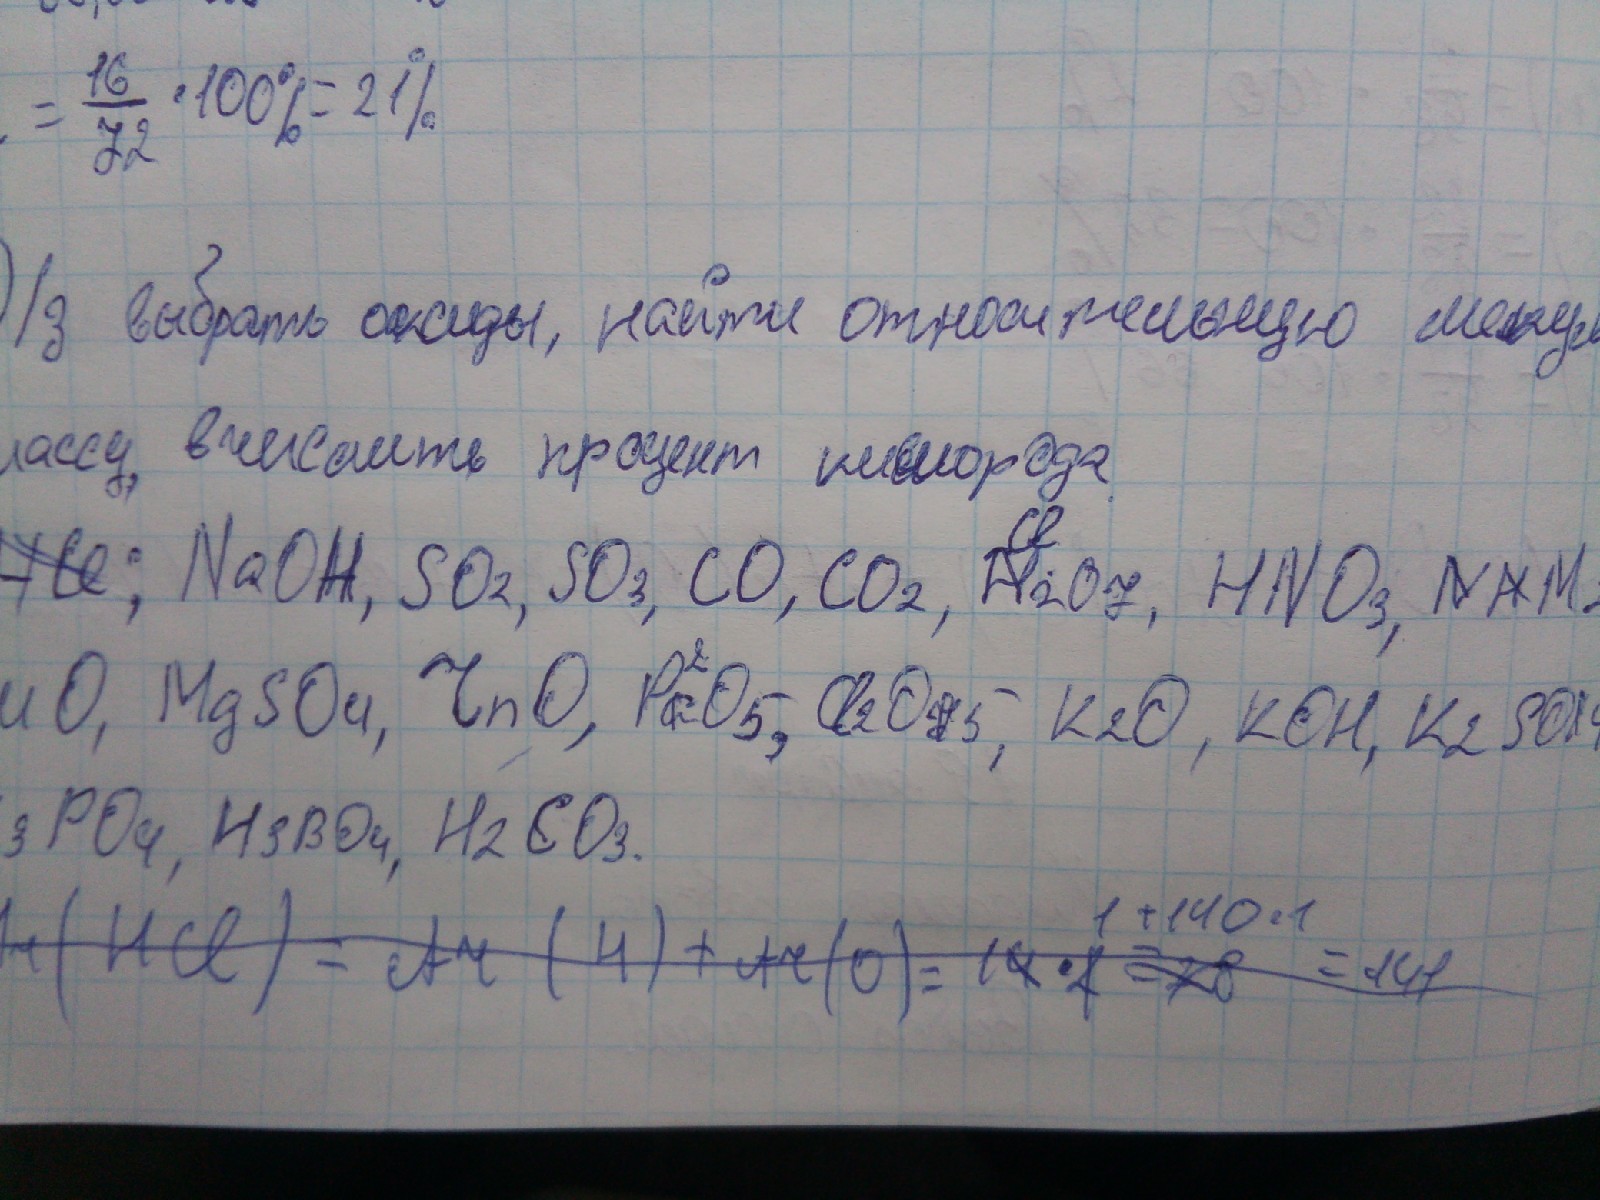 = 16/72 · 100% = 21%
Д/з выбрать оксиды, найти относительную молекул
массу, вчисоить процент кислорода
HCl; NaOH, SO2, SO3, CO, CO2, Cl2O7, HNO3,
uO, MgSO4, ZnO, P2O5, Cl2O5, K2O, KOH, K2SO4
3PO4, H3BO4, H2CO3.
1+140·1
Ar(HCl) = Ar(H) + Ar(O) = = 141